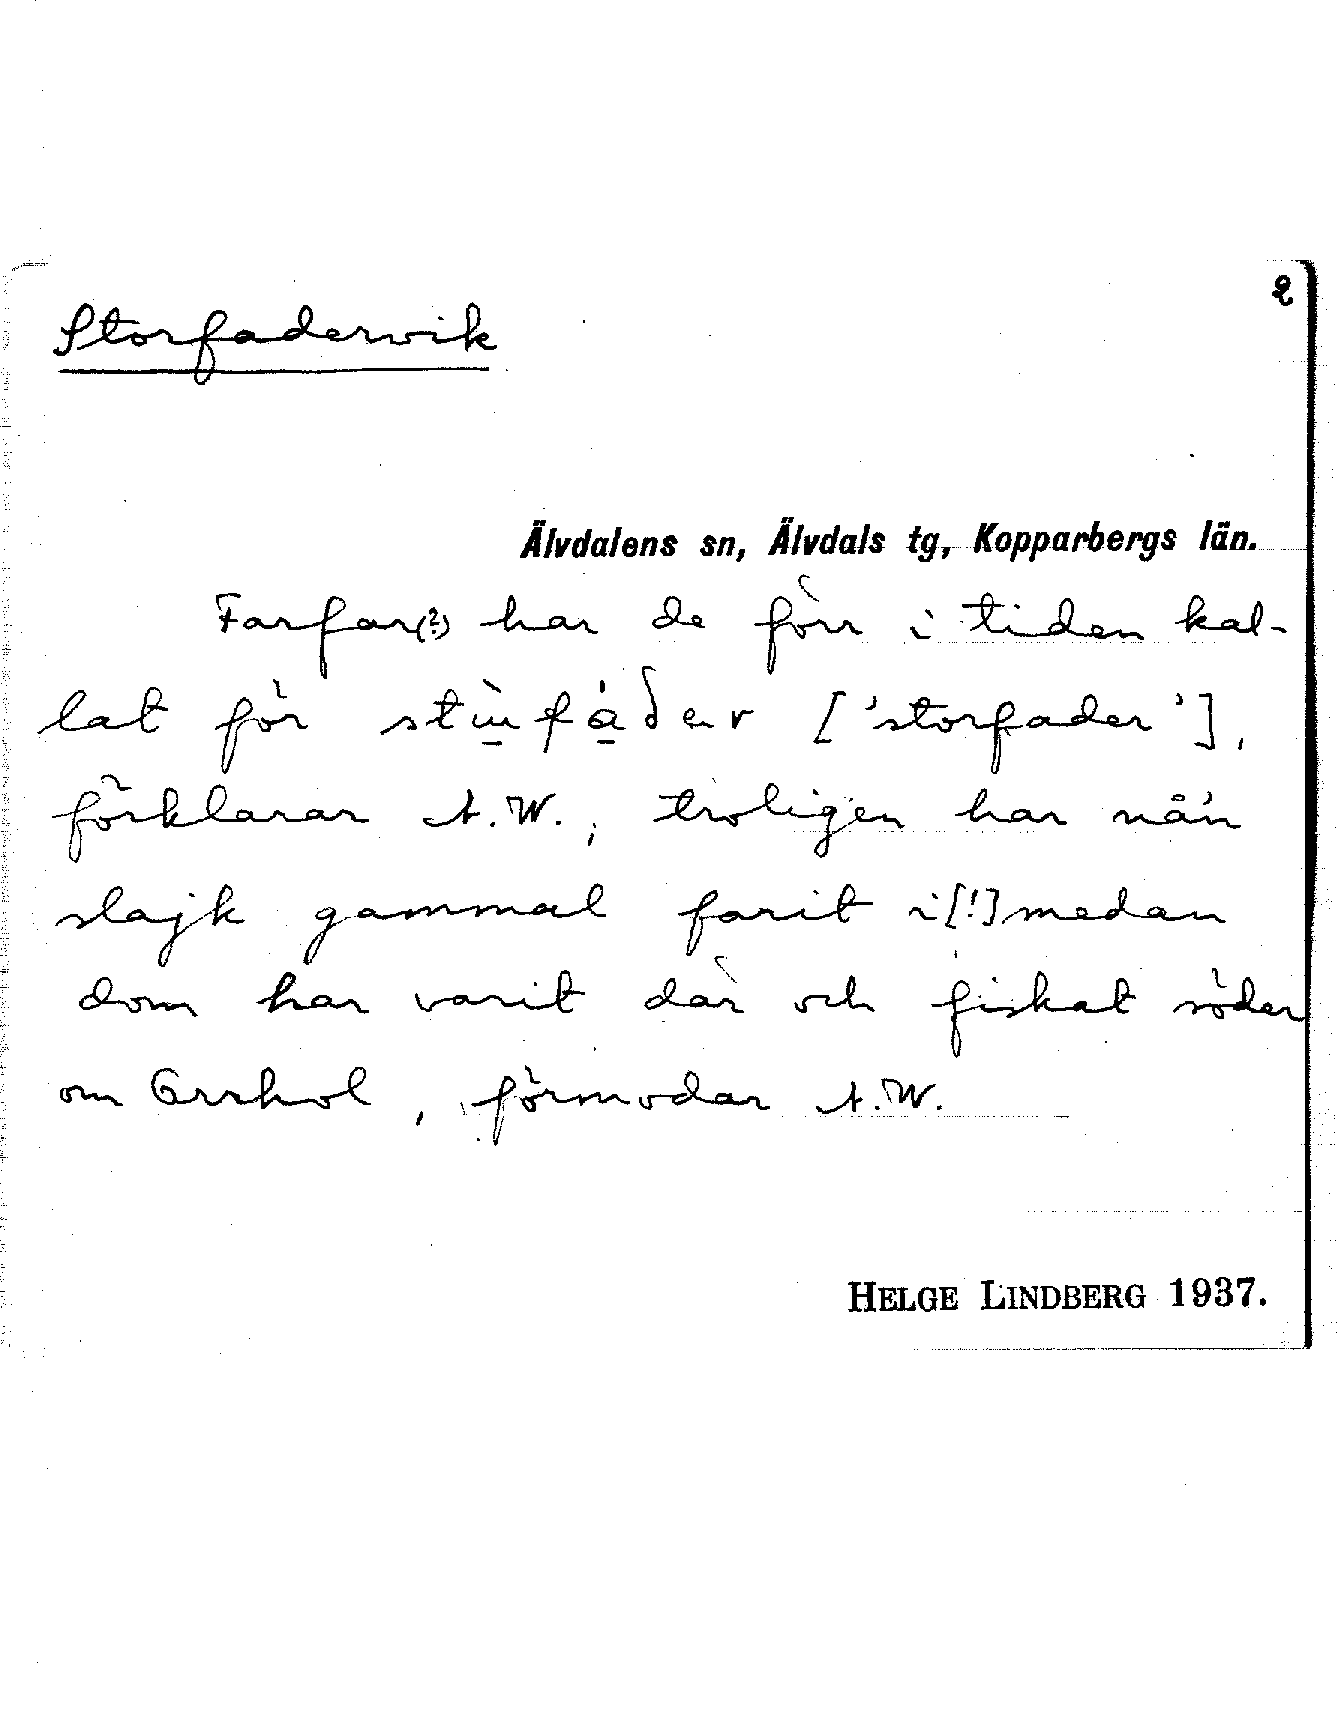 2
Storfadervik
Älvdalens sn, Älvdals tg, Kopparbergs län.
Farfar(?) har de förr i tiden kal-
lat för ['storfader'],
förklarar A.W., troligen har nån
slajk gammal farit i[!] medan
dom har varit där och fiskat söder
om Orrhol, förmodar A.W.
HELGE LINDBERG 1937.